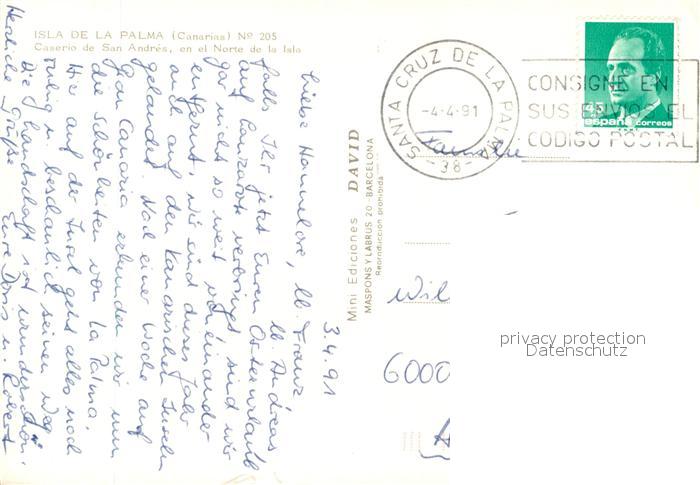 ISLA DE LA PALMA (Canarias) Nº 205
Caserio de San Andrés, en el Norte de la Isla
3.4.91
Liebe Hannelore, lb. Franz
lb. Andreas
falls Ihr jetzt Euren Osterurlaub
auf Lanzarote verbringt sind wir
gar nicht so weit voneinander
entfernt, wir sind dieses Jahr
auch auf den Kanarischen Inseln
gelandet. Nach einer Woche auf
Gran Canaria erkunden wir nun
die Schönheiten von La Palma.
Hier auf der Insel geht alles noch
ruhig u. beschaulich seinen Weg.
Die Landschaft ist wunderschön.
Herzliche Grüße Eure Doris u. Robert
Mini Ediciones DAVID
MASPONS Y LABRUS 20 - BARCELONA
Reproduccion prohibida
SANTA CRUZ DE LA PALMA
-4-4-91
-38-
CONSIGNE EN
SUS ENVIOS EL
CODIGO POSTAL
45
españa correos
Familie
Wil
6000
privacy protection
Datenschutz